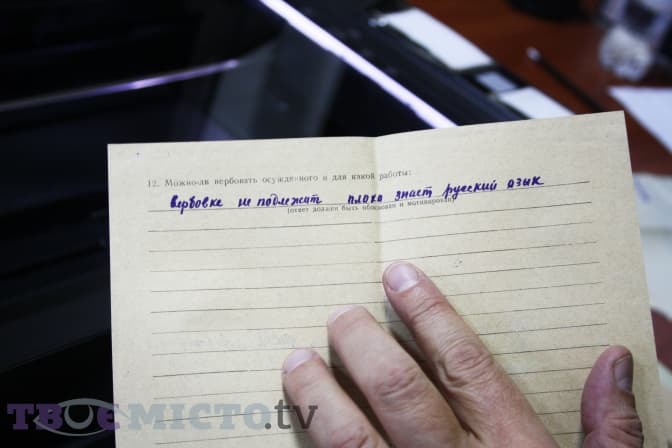 12. Можно ли вербовать осужденного и для какой работы:
Вербовке не подлежит плохо знает русский язык
(ответ должен быть обоснован и мотивирован)
ТВОЄМІСТО.tv